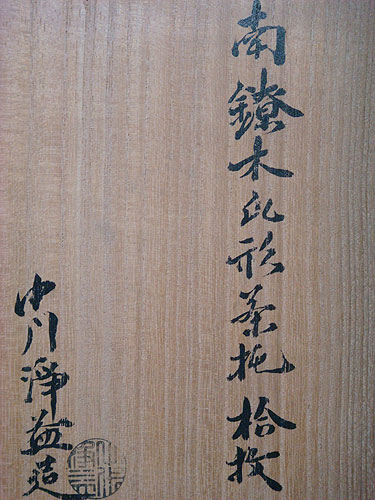 南鐐木瓜形茶托 拾枚
中川淨益造